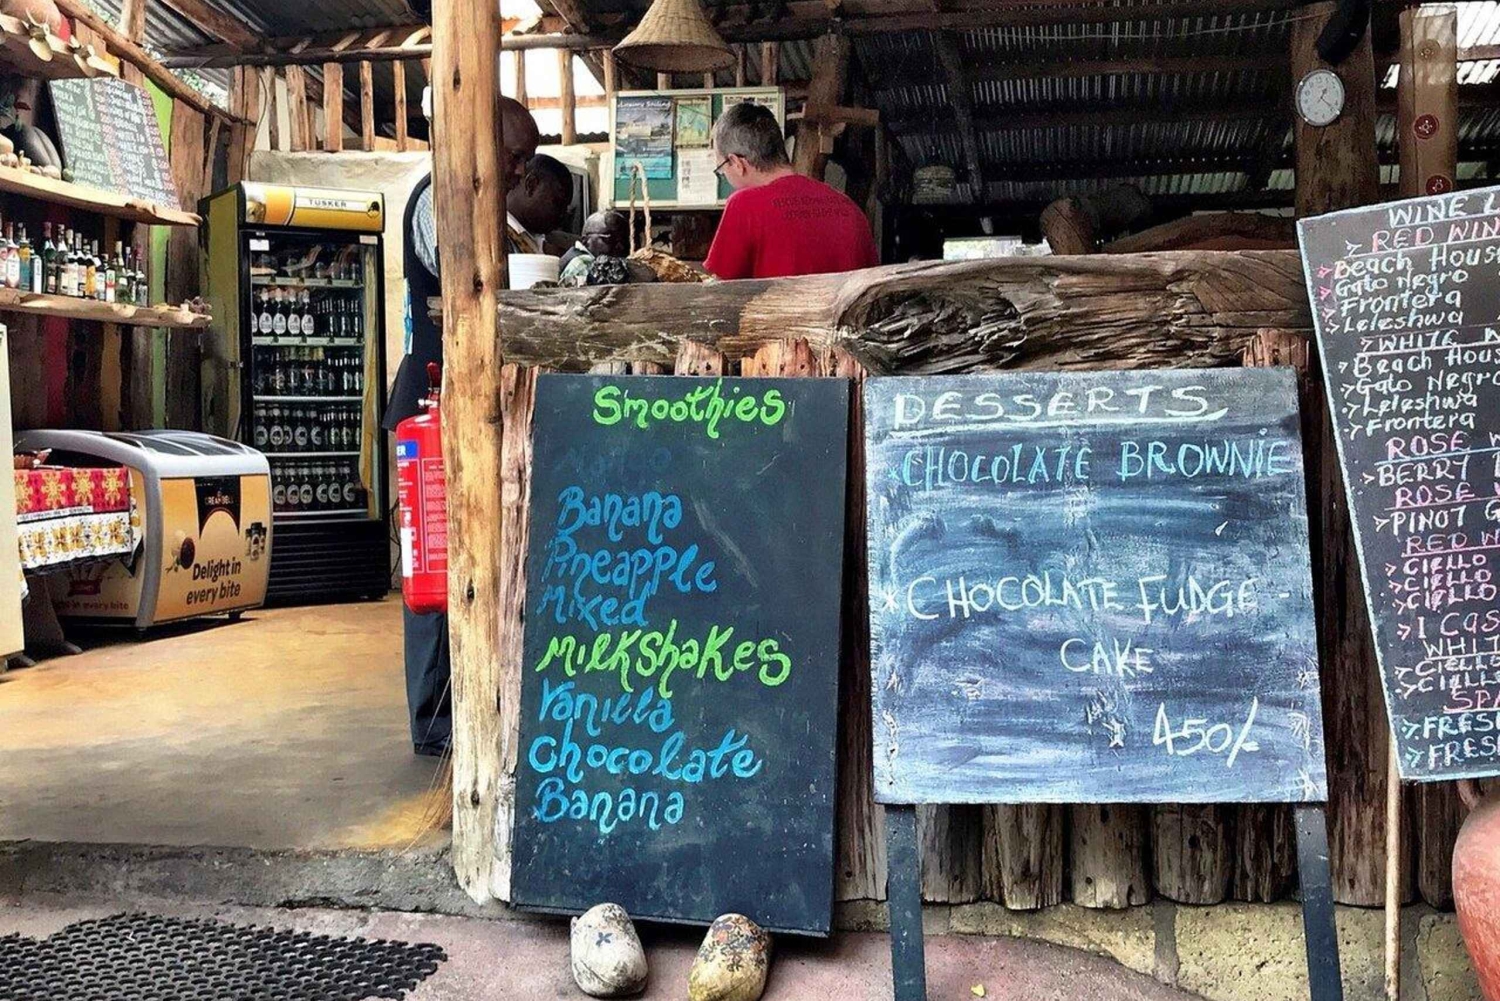 TUSKER
Delight in
every bite
in every bite
Smoothies
Banana
Pineapple
Mixed
Milkshakes
Vanilla
Chocolate
Banana
DESSERTS
CHOCOLATE BROWNIE
*CHOCOLATE FUDGE -
CAKE
450/-
WINE
RED WIN
Beach House
Gato Negro
Frontera
Leleshwa
WHITE
Beach Hous
Gato Negro
Leleshwa
Frontera
ROSE
BERRY
ROSE
PINOT G
RED W
CIELLO
CIELLO
CIELLO
I CAS
WHIT
CIELLO
CIELLO
SPA
FRES
FRES